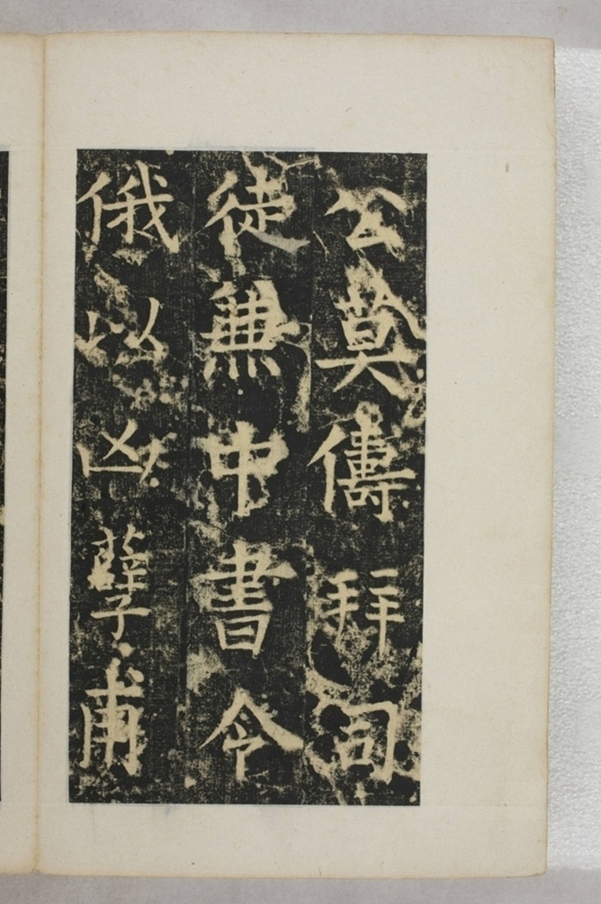 公莫儔拜司
徒兼中書令
俄以凶孽甫